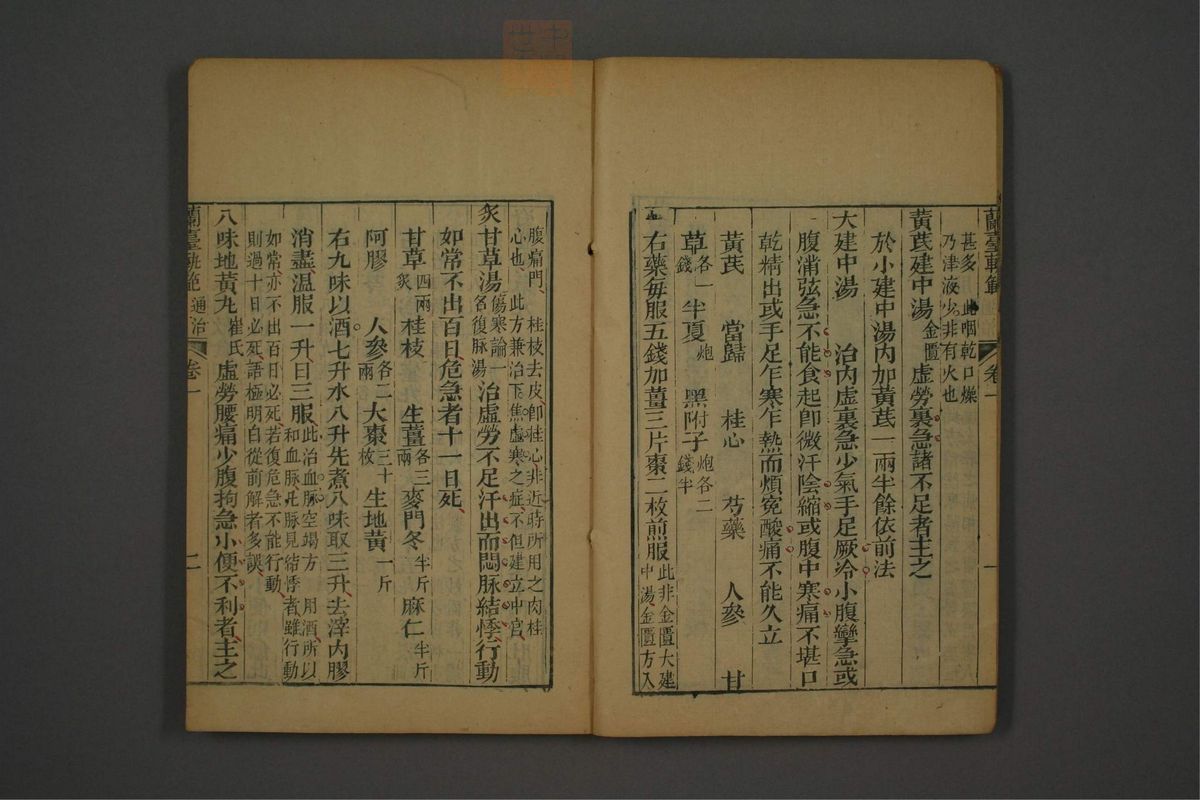 蘭臺軌範 卷一 一
甚多此咽乾口燥
乃津液少非有火也
黃芪建中湯 金匱 虛勞裏急諸不足者主之
於小建中湯內加黃芪一兩半餘依前法
大建中湯 治內虛裏急少氣手足厥冷小腹攣急或
腹滿弦急不能食起卽微汗陰縮或腹中寒痛不堪口
乾精出或手足乍寒乍熱而煩冤酸痛不能久立
黃芪 當歸 桂心 芍藥 人參 甘
草各一錢 半夏炮 黑附子炮各二錢半
右藥每服五錢加薑三片棗二枚煎服此非金匱大建
中湯金匱方入
腹痛門 桂枝去皮卽桂心非近時所用之肉桂
心也 此方兼治下焦虛寒之症不但建立中宮
炙甘草湯 傷寒論一名復脉湯 治虛勞不足汗出而悶脉結悸行動
如常不出百日危急者十一日死
甘草四兩炙 桂枝 生薑各三兩 麥門冬半斤 麻仁半斤
阿膠 人參各二兩 大棗三十枚 生地黃一斤
右九味以酒七升水八升先煮八味取三升去滓內膠
消盡溫服一升日三服此治血脉空竭方 用酒所以
和血脉凡脉見結悸者雖行動
如常亦不出百日必死若復危急不能行動
則過十日必死語極明白從前解者多誤
八味地黃丸 崔氏 虛勞腰痛少腹拘急小便不利者主之
蘭臺軌範 通治 卷一 二